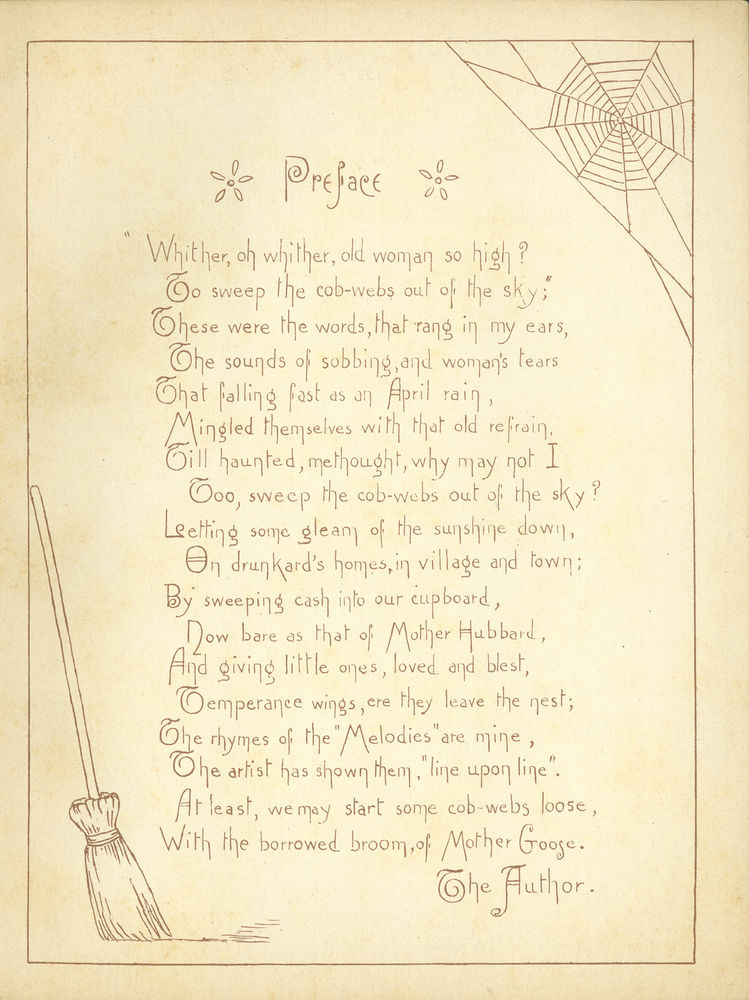 Preface
"Whither, oh whither, old woman so high?
To sweep the cob-webs out of the sky;"
These were the words, that rang in my ears,
The sounds of sobbing, and woman's tears
That falling fast as an April rain,
Mingled themselves with that old refrain,
Till haunted, methought, why may not I
Too, sweep the cob-webs out of the sky?
Letting some gleam of the sunshine down,
On drunkard's homes, in village and town;
By sweeping cash into our cupboard,
Now bare as that of Mother Hubbard,
And giving little ones, loved and blest,
Temperance wings, ere they leave the nest;
The rhymes of the "Melodies" are mine,
The artist has shown them, "line upon line".
At least, we may start some cob-webs loose,
With the borrowed broom, of Mother Goose.
The Author.